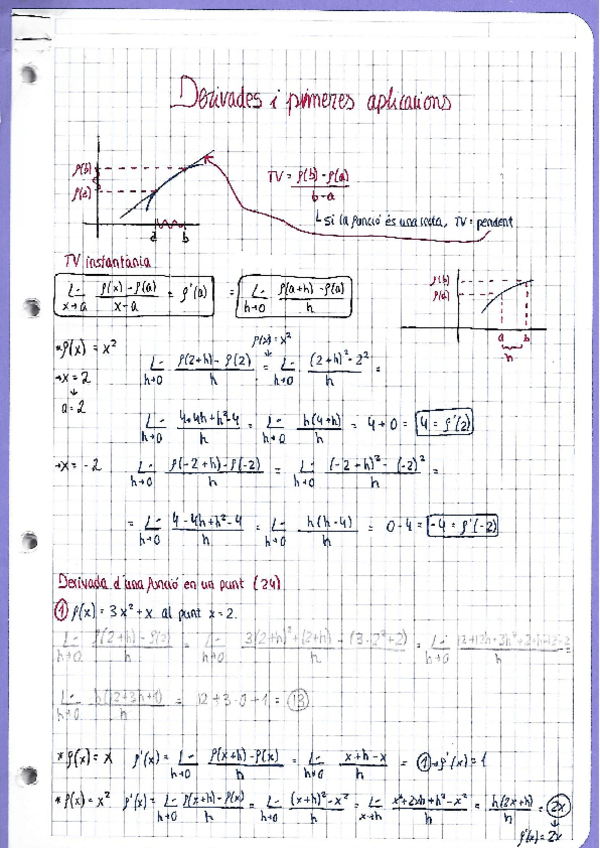 Derivades i primeres aplicacions
f(b)
f(a)
a b
TV = f(b) - f(a) / b-a
si la funció és una recta, TV = pendent
TV instantània
L- x→a f(x) - f(a) / x-a = f'(a) = L- h→0 f(a+h) - f(a) / h
f(b)
f(a)
a b
h
*f(x) = x²
→x = 2
a = 2
f(x) = x²
L- h→0 f(2+h) - f(2) / h = L- h→0 (2+h)² - 2² / h =
L- h→0 4+4h+h²-4 / h = L- h→0 h(4+h) / h = 4+0 = 4 = f'(2)
→x = -2 L- h→0 f(-2+h) - f(-2) / h = L- h→0 (-2+h)² - (-2)² / h =
= L- h→0 4-4h+h²-4 / h = L- h→0 h(h-4) / h = 0-4 = -4 = f'(-2)
Derivada d'una funció en un punt (24)
① f(x) = 3x²+x al punt x = 2.
L- h→0 f(2+h) - f(2) / h = L- h→0 3(2+h)²+(2+h) - (3·2²+2) / h = L- h→0 12+12h+3h²+2+h-12-2 / h =
L- h→0 h(12+3h+1) / h = 12+3·0+1 = 13
*f(x) = x f'(x) = L- h→0 f(x+h) - f(x) / h = L- h→0 x+h-x / h = 1 → f'(x) = 1
*f(x) = x² f'(x) = L- h→0 f(x+h) - f(x) / h = L- h→0 (x+h)² - x² / h = L- x→h x²+2xh+h²-x² / h = h(2x+h) / h = 2x
f'(x) = 2x